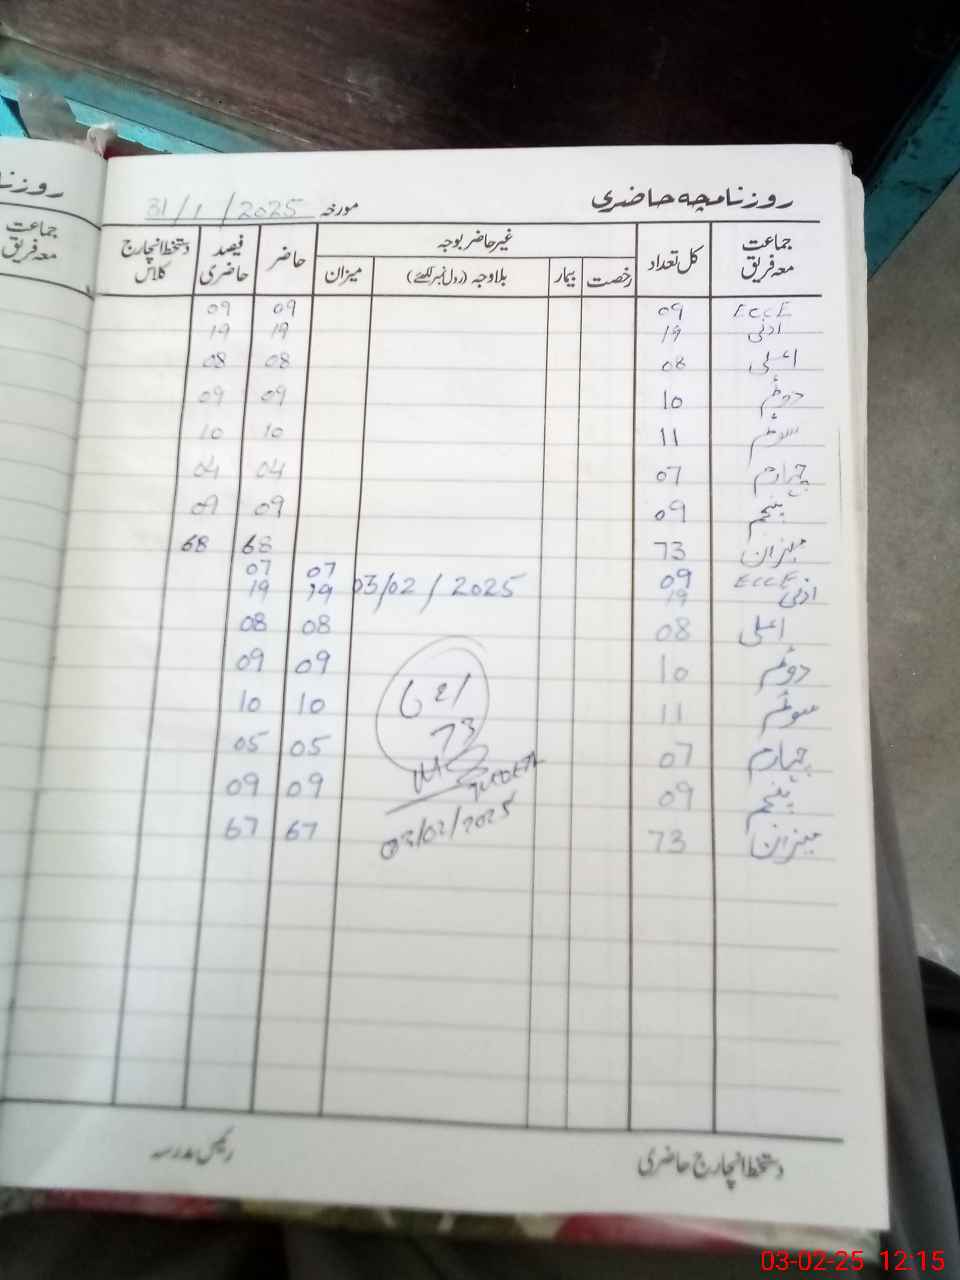 روزنامچہ حاضری مورخہ 31/1/2025
جماعت معہ فریق کل تعداد غیر حاضر بوجہ حاضر فیصد حاضری دستخط انچارج کلاس
رخصت بیمار بلاوجہ (رول نمبر لکھئے) میزان
ECCE 09 09 09
ادنیٰ 19 19 19
اعلیٰ 08 08 08
دوئم 10 09 09
سوئم 11 10 10
چہارم 07 04 04
پنجم 09 09 09
میزان 73 68 68
ECCE 09 03/02/2025 07 07
ادنیٰ 19 19 19
اعلیٰ 08 08 08
دوئم 10 09 09
سوئم 11 10 10
چہارم 07 05 05
پنجم 09 09 09
میزان 73 67 67
73
03/02/2025
دستخط انچارج حاضری رئیس مدرسہ
روزنا
جماعت
معہ فریق
03-02-25 12:15